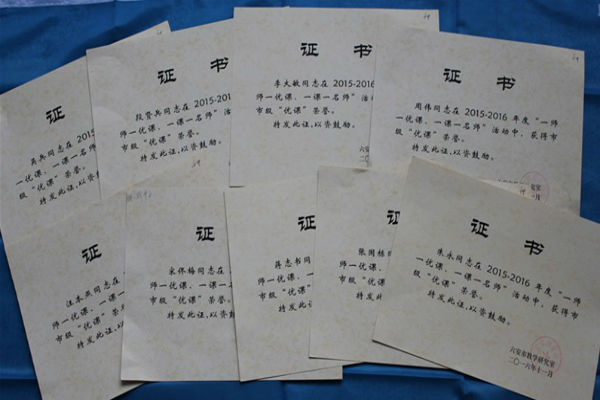 证
吴兵同志在 2015
一优课、一课一名
级“优课”荣誉。
特发此证,以资
证 书
段贤兵同志在 2015-2016
师一优课、一课一名师”活
市级“优课”荣誉。
特发此证,以资鼓励。
证 书
李大敏同志在 2015-2016
师一优课、一课一名师”
市级“优课”荣誉。
特发此证,以资鼓励。
证 书
周伟同志在 2015-2016 年度“一
师一优课、一课一名师”活动中,获得
市级“优课”荣誉。
特发此证,以资鼓励。
证
汪本燕同志在
师一优课、一课
市级“优课”荣
特发此证,以
证
宋怀梅同志在
师一优课、一课一
市级“优课”荣誉。
特发此证,以资鼓
证
蒋志书同志
师一优课、一课
市级“优课”荣
特发此证,以
证
张国栋
师一优课、
市级“优
特发
证 书
朱永同志在 2015-2016 年度“一师
一优课、一课一名师”活动中,获得市
级“优课”荣誉。
特发此证,以资鼓励。
六安市教学研究室
二〇一六年十一月